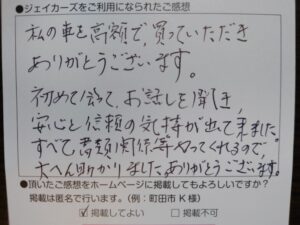 ●ジェイカーズをご利用になられたご感想
私の車を高額で、買っていただき
ありがとうございます。
初めて会って、お話しを聞き、
安心と信頼の気持が出て来ました。
すべて書類関係等やってくれるので、
大へん助かりました。ありがとうございます。
●頂いたご感想をホームページに掲載してもよろしいですか？
掲載は匿名で行います。(例：町田市 K 様)
☑掲載してよい □掲載不可